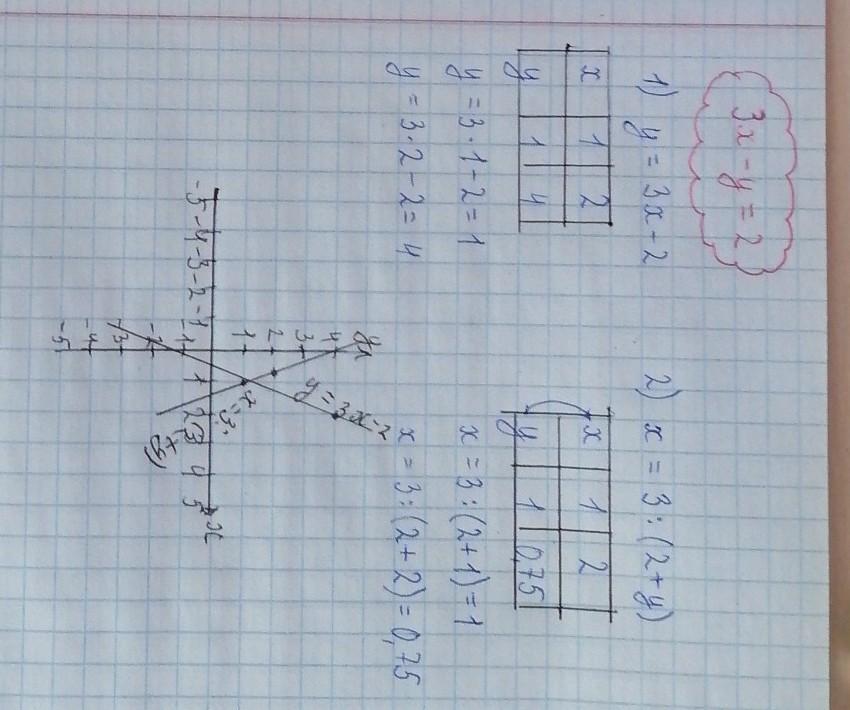 3x - y = 2
1) y = 3x - 2
x 1 2
y 1 4
y = 3·1 - 2 = 1
y = 3·2 - 2 = 4
2) x = 3 : (2 + y)
x 1 2
y 1 0,75
x = 3 : (2 + 1) = 1
x = 3 : (2 + 2) = 0,75
y
4
3
2
1
-5 -4 -3 -2 -1 1 2 3 4 5 x
-1
-2
-3
-4
-5
y = 3x - 2
x = 3 : (2 + y)